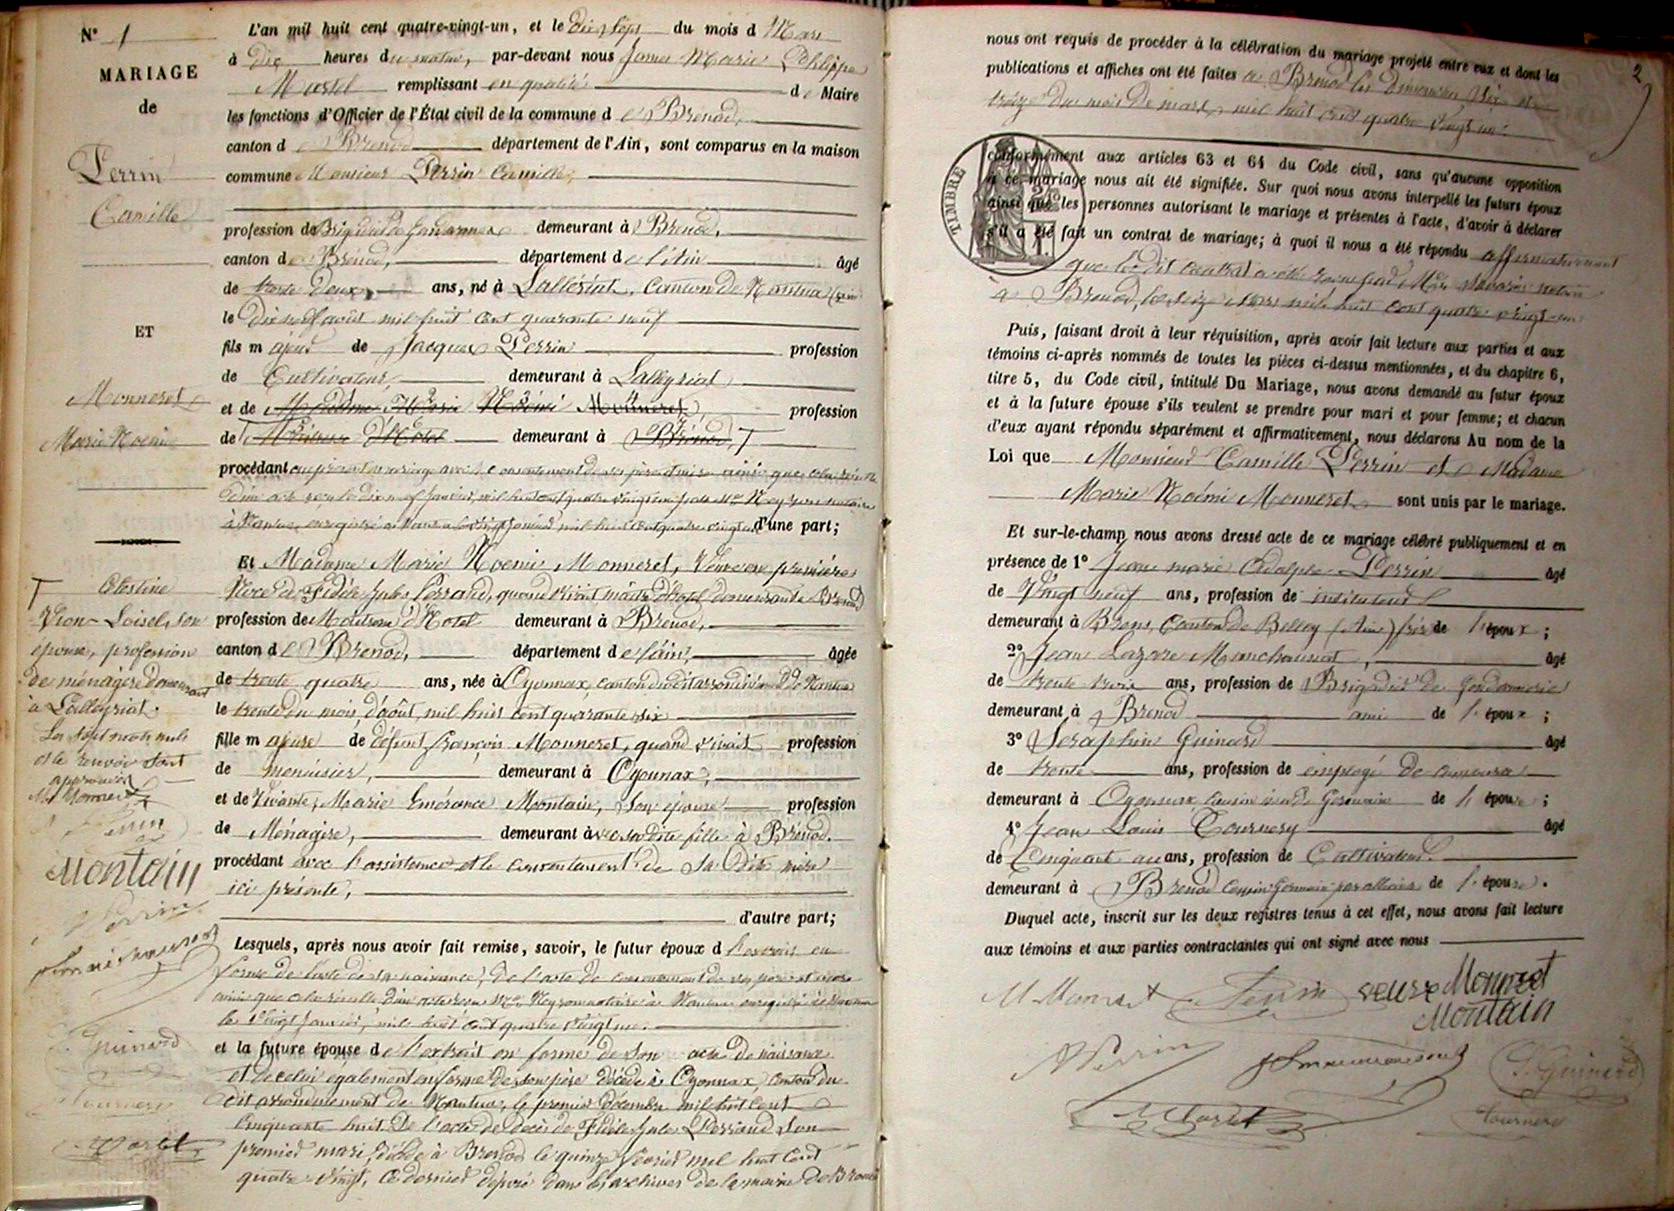 N° 1
MARIAGE
de
Perrin
Camille
ET
Monneret
Marie Noémi
L'an mil huit cent quatre-vingt-un, et le dix sept du mois d Mars
à dix heures du matin, par-devant nous James Marie Philippe
Martel remplissant en qualité de Maire
les fonctions d'Officier de l'État civil de la commune de Brénod,
canton de Brénod département de l'Ain, sont comparus en la maison
commune Monsieur Perrin Camille,
profession de Brigadier de Gendarmerie demeurant à Brénod,
canton de Brénod, département de l'Ain âgé
de trente deux ans, né à Lalleyriat, Canton de Nantua (Ain)
le dix neuf août mil huit cent quarante neuf
fils majeur de Jacques Perrin profession
de Cultivateur, demeurant à Lalleyriat,
et de Madame Marie Noémi Monneret, profession
de Maîtresse d'Hotel demeurant à Brénod, T
procédant au présent mariage avec le consentement de ses père et mère ainsi que cela résulte
d'un acte reçu le dix neuf Janvier, mil huit cent quatre vingt un par Me Neyron notaire
à Nantua, enregistré à Nantua le vingt Janvier mil huit cent quatre vingt un d'une part;
Et Madame Marie Noémie Monneret, Veuve en premières
Noces de Fidèle Jules Perraud, quand vivait maître d'hotel demeurant à Brénod
profession de Maîtresse d'Hotel demeurant à Brénod,
canton de Brénod, département de l'Ain, âgée
de trente quatre ans, née à Oyonnax, canton dudit arrondissement de Nantua
le trente du mois d'août, mil huit cent quarante six
fille majeure de défunt François Monneret, quand vivait profession
de menuisier, demeurant à Oyonnax,
et de Vivante, Marie Emérance Montain, son épouse profession
de Ménagère, demeurant avec sa dite fille à Brénod.
procédant avec l'assistance et le consentement de sa dite mère
ici présente,
d'autre part;
Lesquels, après nous avoir fait remise, savoir, le futur époux de l'extrait en
forme de l'acte de sa naissance, de l'acte de consentement de ses père et mère
ainsi que cela résulte d'un acte reçu Me Neyron notaire à Nantua enregistré à Nantua
le vingt Janvier, mil huit cent quatre vingt un.
et la future épouse de l'extrait en forme de son acte de naissance
et de celui également en forme de son père décédé à Oyonnax, canton du
dit arrondissement de Nantua, le premier décembre mil huit cent
cinquante huit. De l'acte de décès de Fidèle Jules Perraud son
premier mari, décédé à Brénod le quinze février mil huit cent
quatre vingt, ce dernier déposé dans les archives de la mairie de Brénod
T Célestine
Vion-Loisel, son
épouse, profession
de ménagère demeurant
à Lalleyriat.
Les sept mots nuls
et le renvoi sont
approuvés
M Monneret
Perrin
Montain
Perrin
Guinard
Tournery
Martel
2
nous ont requis de procéder à la célébration du mariage projeté entre eux et dont les
publications et affiches ont été faites à Brénod les dimanches six et
treize du mois de mars, mil huit cent quatre vingt un.
TIMBRE
conformément aux articles 63 et 64 du Code civil, sans qu'aucune opposition
à ce mariage nous ait été signifiée. Sur quoi nous avons interpellé les futurs époux
ainsi que les personnes autorisant le mariage et présentes à l'acte, d'avoir à déclarer
s'il a été fait un contrat de mariage; à quoi il nous a été répondu affirmativement
que le dit contrat a été reçu par Me notaire
à Brénod, le seize mars mil huit cent quatre vingt-un
Puis, faisant droit à leur réquisition, après avoir fait lecture aux parties et aux
témoins ci-après nommés de toutes les pièces ci-dessus mentionnées, et du chapitre 6,
titre 5, du Code civil, intitulé Du Mariage, nous avons demandé au futur époux
et à la future épouse s'ils veulent se prendre pour mari et pour femme; et chacun
d'eux ayant répondu séparément et affirmativement, nous déclarons Au nom de la
Loi que Monsieur Camille Perrin et Madame
Marie Noémi Monneret sont unis par le mariage.
Et sur-le-champ nous avons dressé acte de ce mariage célébré publiquement et en
présence de 1° Jean marie Adolphe Perrin âgé
de Vingt neuf ans, profession de instituteur
demeurant à Brens, Canton de Belley (Ain) frère de l'époux;
2° Jean Lazare âgé
de trente trois ans, profession de Brigadier de Gendarmerie
demeurant à Brénod ami de l'époux;
3° Séraphin Guinard âgé
de trente ans, profession de employé de commerce
demeurant à Oyonnax, cousin issu de Germain de l'épouse;
4° Jean Louis Tournery âgé
de Cinquante un ans, profession de Cultivateur
demeurant à Brénod Cousin Germain par alliance de l'épouse.
Duquel acte, inscrit sur les deux registres tenus à cet effet, nous avons fait lecture
aux témoins et aux parties contractantes qui ont signé avec nous
M Monneret Perrin veuve Monneret
Montain
A Perrin
S. Guinard
Martel
Tournery